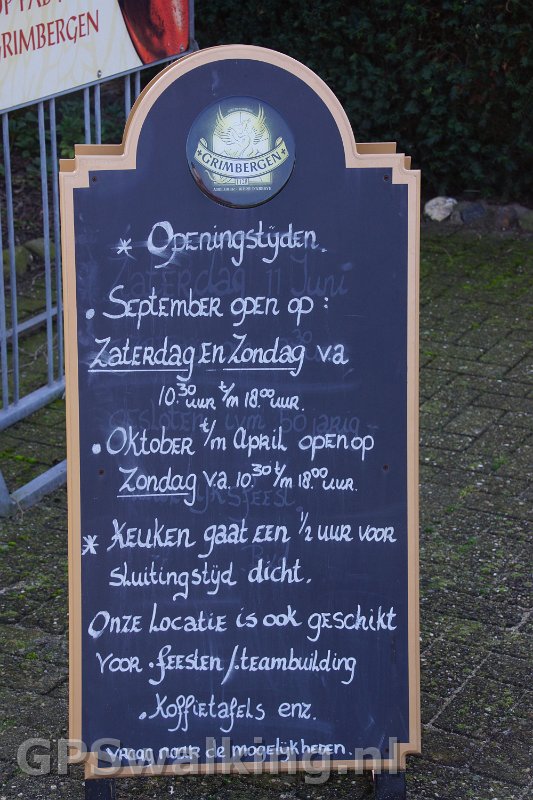 GRIMBERGEN
GRIMBERGEN
* Openingstijden.
• September open op :
Zaterdag en Zondag va
10.30 uur t/m 18.00 uur.
• Oktober t/m April open op
Zondag va. 10.30 t/m 18.00 uur.
* Keuken gaat een 1/2 uur voor
sluitingstijd dicht.
Onze Locatie is ook geschikt
voor feesten / teambuilding
Koffietafels enz.
vraag naar de mogelijkheden.
GPSwalking.nl